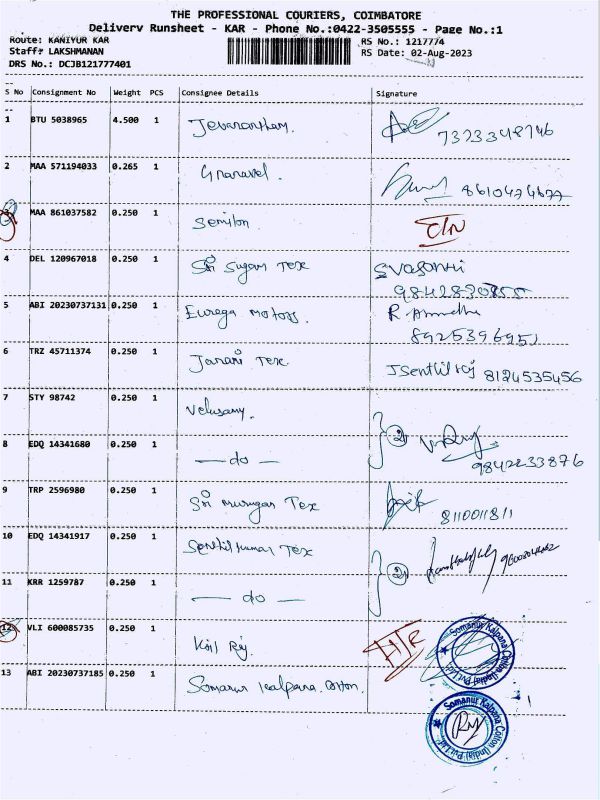 THE PROFESSIONAL COURIERS, COIMBATORE
Delivery Runsheet - KAR - Phone No.:0422-3505555 - Page No.:1
Route: KANIYUR KAR
RS No.: 1217774
Staff: LAKSHMANAN
RS Date: 02-Aug-2023
DRS No.: DCJB121777401
S No Consignment No Weight PCS Consignee Details Signature
1 BTU 5038965 4.500 1 Jevanantham.
7323348746
2 MAA 571194033 0.265 1 Gnanavel.
3 MAA 861037582 0.250 1
4 DEL 120967018 0.250 1 Sri Sugam Tex SVASANthi
9842830855
5 ABI 20230737131 0.250 1 Eurega Motors. R. Amutha
8925396951
6 TRZ 45711374 0.250 1 Janani Tex JSenthil raj 8124535456
7 STY 98742 0.250 1 Velusamy.
2
9842233876
8 EDQ 14341680 0.250 1 — do —
9 TRP 2596980 0.250 1 Sri Murugan Tex
8110011811
10 EDQ 14341917 0.250 1 Senthilkumar Tex
2
11 KRR 1259787 0.250 1 — do —
12 VLI 600085735 0.250 1
Somanur Kalpana Cotton (India) Pvt Ltd
13 ABI 20230737185 0.250 1 Somanur Kalpana Cotton.
Somanur Kalpana Cotton (India) Pvt Ltd